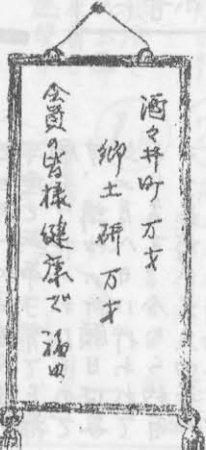 酒々井町 万才
郷土研 万才
会員の皆様健康で 福田